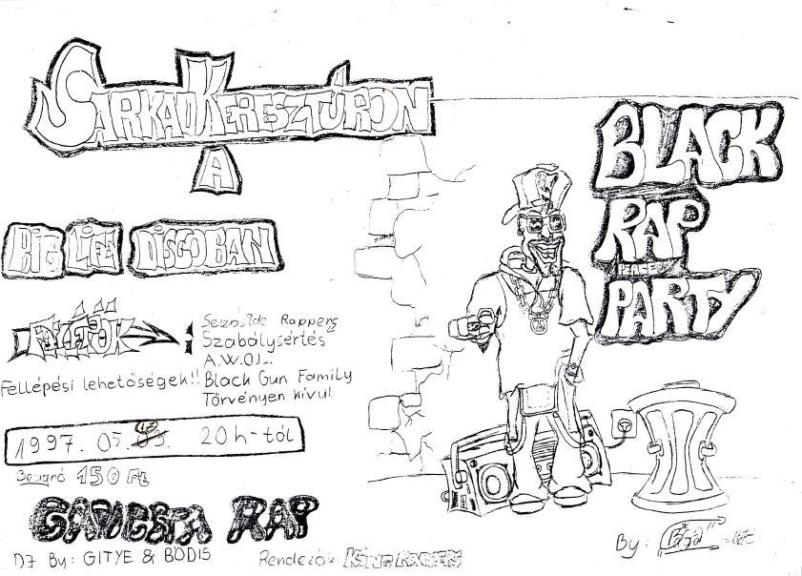 SÁRKADKERESZTÚRON
A
BIG LIFE DISCOBAN
FELLÉPŐK
Rappers
Szabálysértés
A.W.O.L.
Fellépési lehetőségek!! Black Gun Family
Törvényen kívül
1997. 05. 20h-tól
Beugró 150 Ft
GANGSTA RAP
DJ By: GITYE & BÓDIS
Rendezők:
BLACK
RAP
PEACE
PARTY
By: